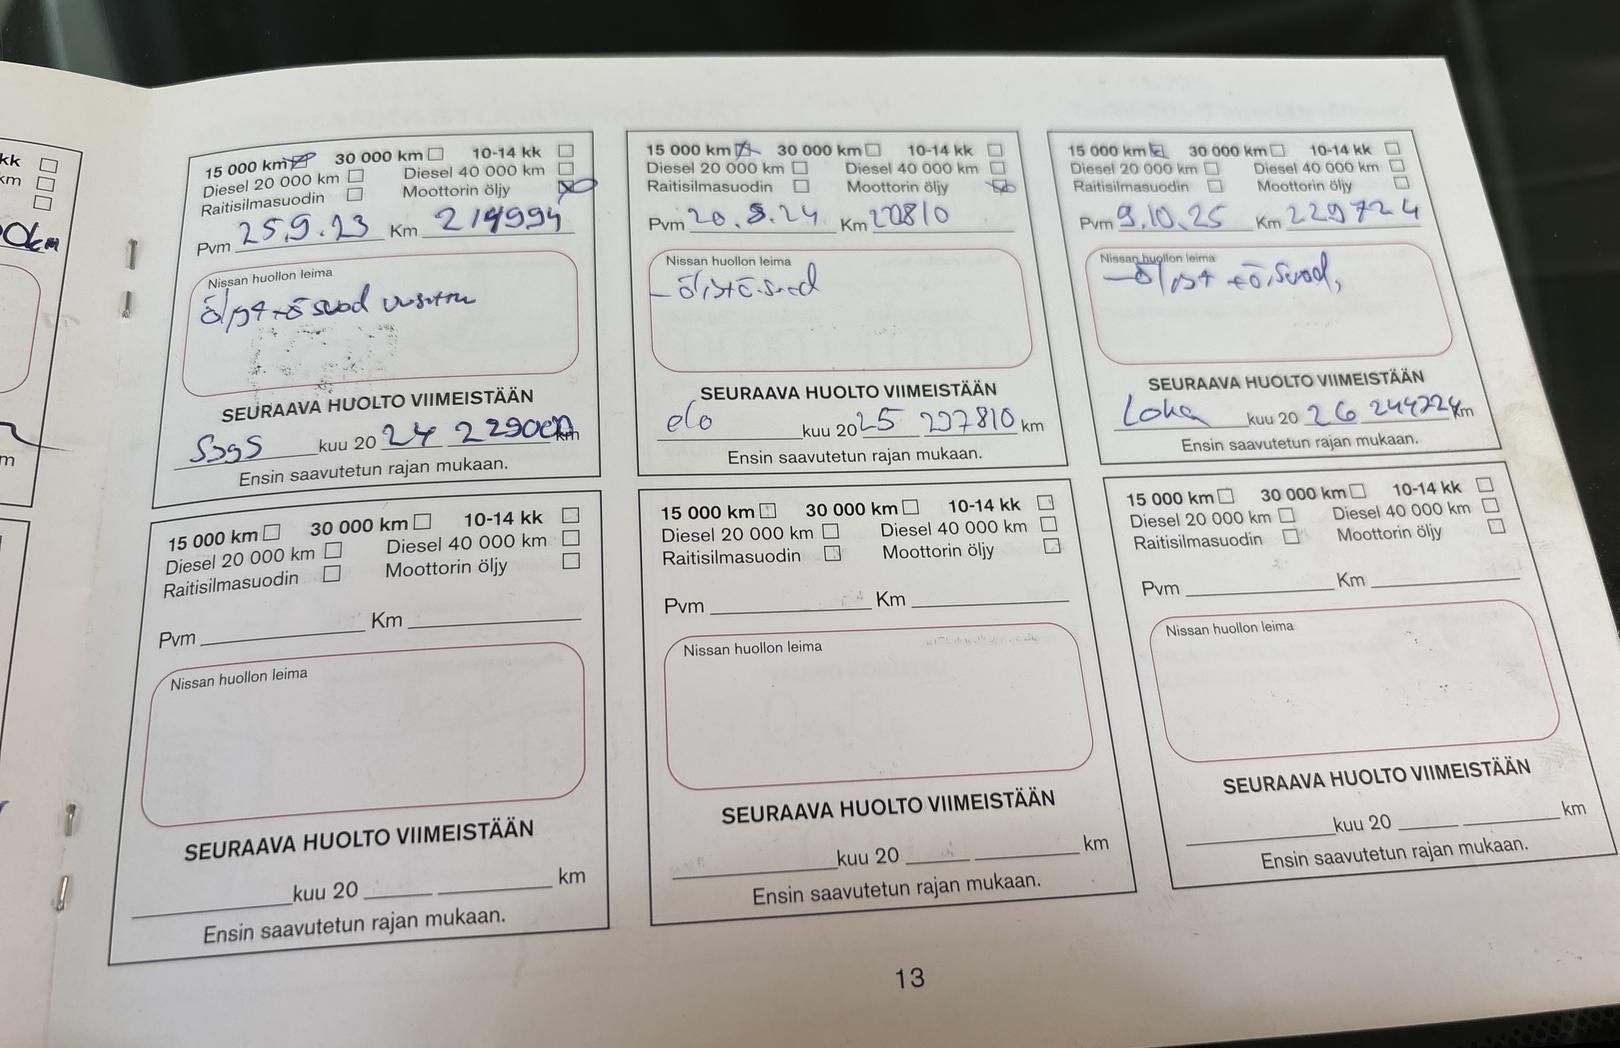 kk
km
0km
m
15 000 km 30 000 km 10-14 kk
Diesel 20 000 km Diesel 40 000 km
Raitisilmasuodin Moottorin öljy
Pvm 25.9.23 Km 214994
Nissan huollon leima
SEURAAVA HUOLTO VIIMEISTÄÄN
Syys kuu 20 24 229000 km
Ensin saavutetun rajan mukaan.
15 000 km 30 000 km 10-14 kk
Diesel 20 000 km Diesel 40 000 km
Raitisilmasuodin Moottorin öljy
Pvm 20.8.24 Km 222810
Nissan huollon leima
SEURAAVA HUOLTO VIIMEISTÄÄN
elo kuu 20 25 237810 km
Ensin saavutetun rajan mukaan.
15 000 km 30 000 km 10-14 kk
Diesel 20 000 km Diesel 40 000 km
Raitisilmasuodin Moottorin öljy
Pvm 9.10.25 Km 229724
Nissan huollon leima
SEURAAVA HUOLTO VIIMEISTÄÄN
Loka kuu 20 26 244724 km
Ensin saavutetun rajan mukaan.
15 000 km 30 000 km 10-14 kk
Diesel 20 000 km Diesel 40 000 km
Raitisilmasuodin Moottorin öljy
Pvm Km
Nissan huollon leima
SEURAAVA HUOLTO VIIMEISTÄÄN
kuu 20 km
Ensin saavutetun rajan mukaan.
15 000 km 30 000 km 10-14 kk
Diesel 20 000 km Diesel 40 000 km
Raitisilmasuodin Moottorin öljy
Pvm Km
Nissan huollon leima
SEURAAVA HUOLTO VIIMEISTÄÄN
kuu 20 km
Ensin saavutetun rajan mukaan.
15 000 km 30 000 km 10-14 kk
Diesel 20 000 km Diesel 40 000 km
Raitisilmasuodin Moottorin öljy
Pvm Km
Nissan huollon leima
SEURAAVA HUOLTO VIIMEISTÄÄN
kuu 20 km
Ensin saavutetun rajan mukaan.
13